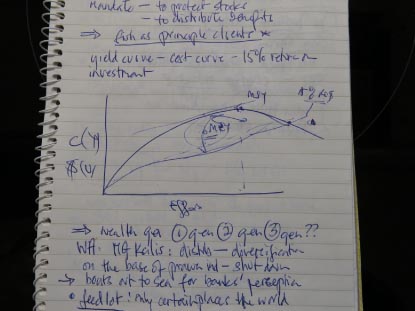 mandate – to protect stocks
– to distribute benefits
⇒ fish as 'principle clients' *
yield curve – cost curve – 15% return on
investment
MSY
MEY
C(Y)
$(U)
Effort
⇒ wealth gen ① gen ② gen ③ gen??
WA. MG Kailis: distrib – diversification
on the base of prawn ind – shut down
→ boats out to sea for banks' perception
• feed lot: only certain places the world